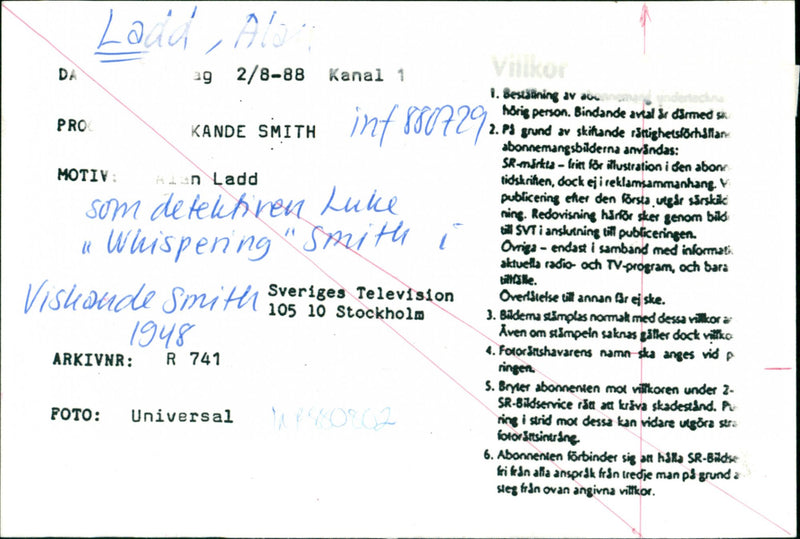 Ladd, Alan
DA ag 2/8-88 Kanal 1
PRO KANDE SMITH inf 880729
MOTIV: Alan Ladd
som detektiven Luke
"Whispering" Smith i
Viskande Smith
1948
Sveriges Television
105 10 Stockholm
ARKIVNR: R 741
FOTO: Universal
Villkor
1. Beställning av abonnemang undertecknas
hörig person. Bindande avtal är därmed
2. På grund av skiftande rättighetsförhållan
abonnemangsbilderna användas:
SR-märkta – fritt för illustration i den abonn
tidskriften, dock ej i reklamsammanhang. V
publicering efter den första utgår särskild
ning. Redovisning härför sker genom bild
till SVT i anslutning till publiceringen.
Övriga – endast i samband med informati
aktuella radio- och TV-program, och bara
tillfälle.
Överlåtelse till annan får ej ske.
3. Bilderna stämplas normalt med dessa villkor
Även om stämpeln saknas gäller dock villko
4. Fotorättshavarens namn ska anges vid p
ringen.
5. Bryter abonnenten mot villkoren under 2-
SR-Bildservice rätt att kräva skadestånd. Pu
ring i strid mot dessa kan vidare utgöra stra
fotorättsintrång.
6. Abonnenten förbinder sig att hålla SR-Bildse
fri från alla anspråk från tredje man på grund a
steg från ovan angivna villkor.